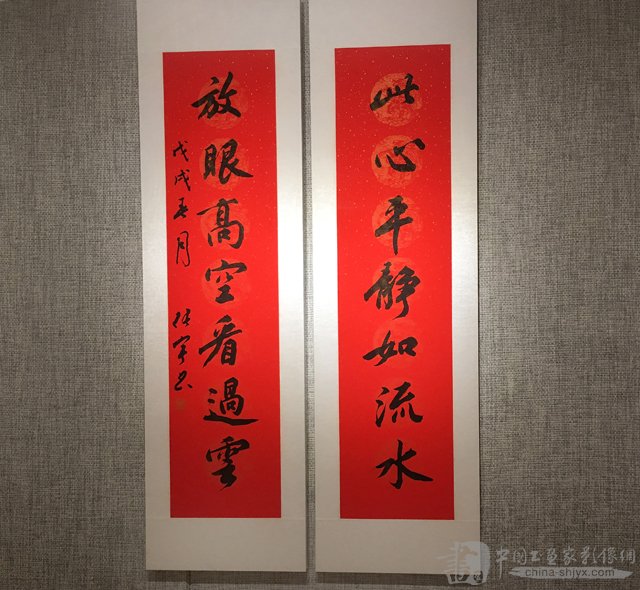 此心平静如流水
放眼高空看過雲
戊戌春月
中国书画家影像網
china-shjyx.com